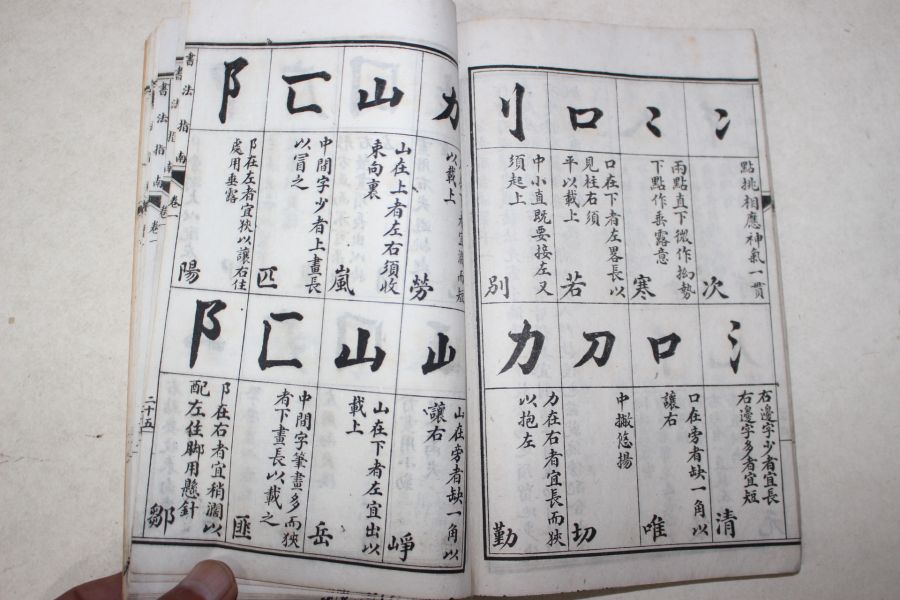 冫
點挑相應神氣一貫
次
冫
兩點直下微作拗勢
下點作垂露意
寒
口
口在下者左畧長以
見柱右須
平以載上
若
刂
中小直既要接左又
須起上
別
氵
右邊字少者宜長
右邊字多者宜短
清
口
口在旁者缺一角以
讓右
唯
刀
中撇悠揚
切
力
力在右者宜長而狹
以抱左
勤
力
以載上
勞
山
山在上者左右須收
束向裏
嵐
匸
中間字少者上畫長
以冒之
匹
阝
阝在左者宜狹以讓右住
處用垂露
陽
山
山在旁者缺一角以
讓右
崢
山
山在下者左宜出以
載上
岳
匚
中間字筆畫多而狹
者下畫長以載之
匪
阝
阝在右者宜稍濶以
配左住脚用懸針
鄒
書法指南
卷一
二十五
書法指南
卷一